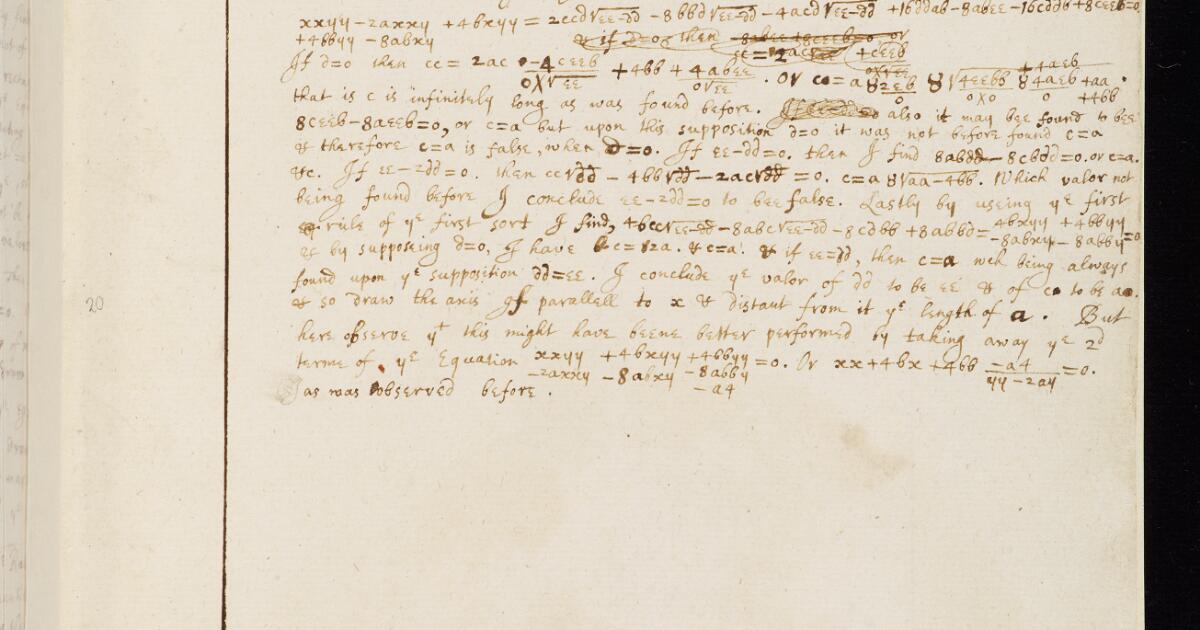 xxyy - 2axxy + 4bxyy = 2ccd√εε-dd - 8bbd√εε-dd - 4acd√εε-dd + 16ddab - 8abεε - 16cddb + 8cεεb = 0
+ 4bbyy - 8abxy & if d=0, then or
If d=0 then cc = 2ac - 4cεεb / 0×√εε + 4bb + 4abεε / 0√εε . or c = a
that is c is infinitely long as was found before. also it may bee found to bee
8cεεb - 8aεεb = 0, or c=a but upon this supposition d=0 it was not before found c=a
& therefore c=a is false, when d=0. If εε-dd=0. then I find 8abdd - 8cbdd = 0. or c=a.
&c. If εε-2dd=0. then cc√dd - 4bb√dd - 2ac√dd = 0. c=a 8√aa-4bb. Which valor not
being found before I conclude εε-2dd=0 to bee false. Lastly by useing yᵉ first
rule of yᵉ first sort I find, 4bcc√εε-dd - 8abc√εε-dd - 8cdbb + 8abbd = 4bxyy + 4bbyy - 8abxy - 8abby = 0
& by supposing d=0, I have c=2a. & c=a. & if εε=dd, then c=a wch being always
found upon yᵉ supposition dd=εε. I conclude yᵉ valor of dd to be εε & of c to be a.
20
& so draw the axis gf parallell to x & distant from it yᵉ length of a. But
here observe yᵗ this might have beene better performed by taking away yᵉ 2d
terme of, yᵉ Equation xxyy + 4bxyy + 4bbyy - 2axxy - 8abxy - 8abby - a4 = 0. Or xx + 4bx + 4bb - a4 / yy - 2ay = 0.
as was observed before.